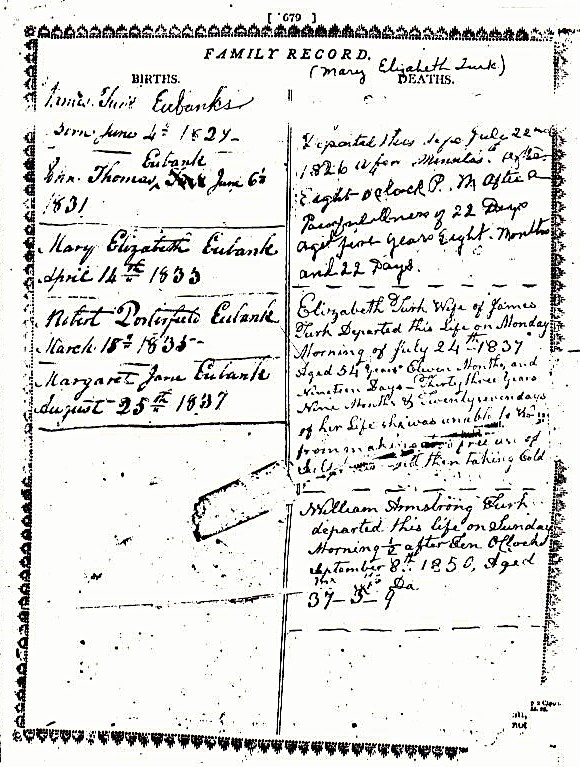 [ 679 ]
FAMILY RECORD.
BIRTHS.
James Turk Eubanks
Born June 4th 1827
Eubank
John Thomas June 6th
1831
Mary Elizabeth Eubank
April 14th 1833
Robert Porterfield Eubank
March 18th 1835
Margaret Jane Eubank
August 25th 1837
(Mary Elizabeth Turk)
DEATHS.
Departed this Life July 22nd
1826 a few Minutes after
Eight oClock P. M After a
Painful illness of 22 Days
aged five years Eight Months
and 22 Days.
Elizabeth Turk Wife of James
Turk Departed this Life on Monday
Morning of July 24th 1837
Aged 54 years Eleven Months and
Nineteen Days - Thirty three years
Nine Months & Twenty seven days
of her Life she was unable to
from
then taking Cold
William Armstrong Turk
departed this life on Sunday
Morning ½ after Ten OClock
September 8th 1850, Aged
Da
37 - 5 - 9